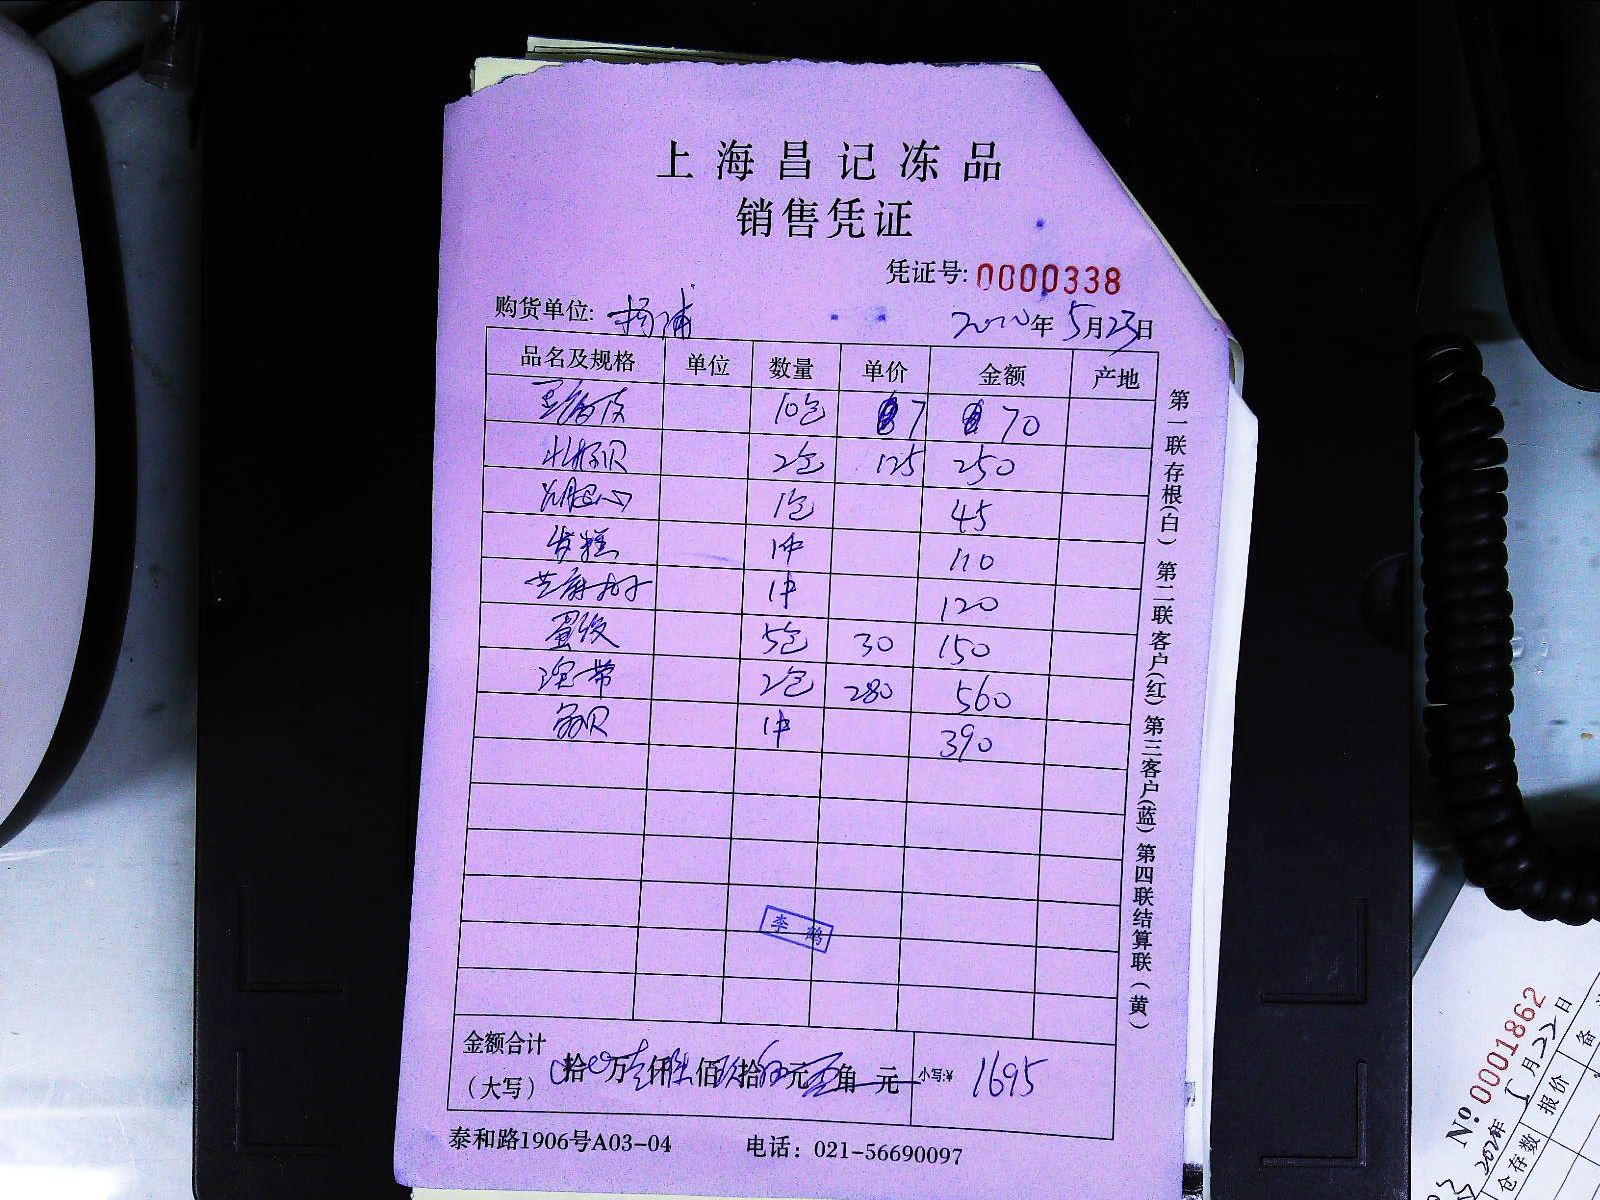 上海昌记冻品
销售凭证
凭证号: 0000338
购货单位: 杨浦 2020年5月23日
品名及规格 单位 数量 单价 金额 产地
10包 7 70
北极贝 2包 125 250
1包 45
发糕 1件 110
芝麻 1件 120
蛋饺 5包 30 150
2包 280 560
1件 390
李
金额合计
(大写) 拾 万 仟 佰 拾 元 角 元 小写:¥ 1695
泰和路1906号A03-04 电话：021-56690097
第一联存根(白) 第二联客户(红) 第三客户(蓝) 第四联结算联(黄)
№ 0001862
月22日
仓存数 报价 备